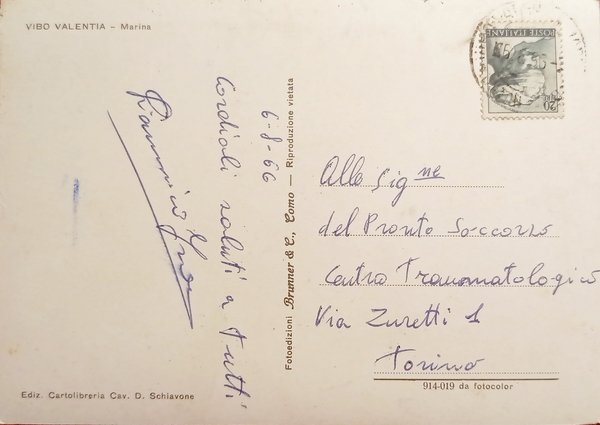 VIBO VALENTIA - Marina
POSTE ITALIANE
20
6-8-66
Cordiali saluti a Tutti
Fotoedizioni Brunner & C., Como — Riproduzione vietata
Alle Sig.ne
del Pronto Soccorso
Centro Traumatologico
Via Zuretti 1
Torino
914-019 da fotocolor
Ediz. Cartolibreria Cav. D. Schiavone